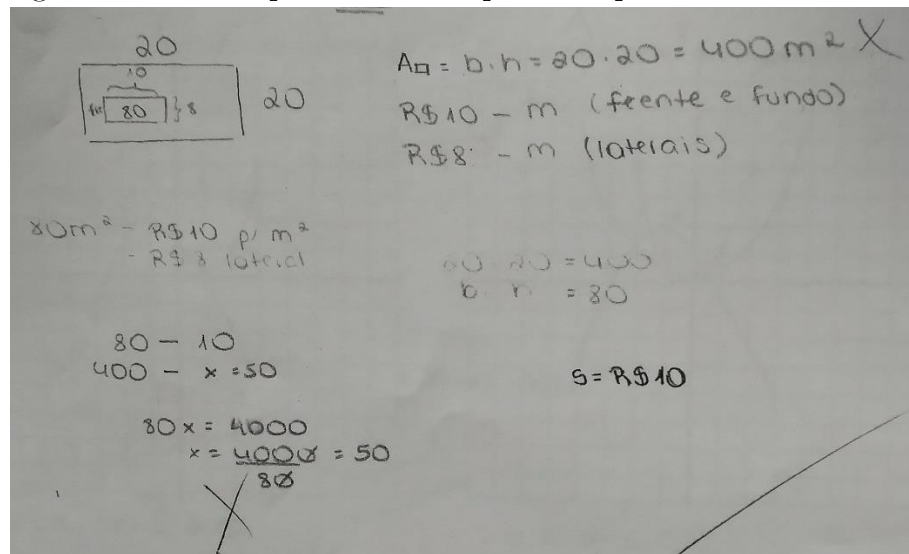 20
10
80 } 8
20
A□ = b.h = 20.20 = 400 m²
R$10 - m (frente e fundo)
R$8 - m (laterais)
80m² - R$10 p/ m²
- R$ 8 lateral
20 = 400
b. h = 80
80 - 10
400 - x = 50
80x = 4000
x = 4000 = 50
80
S = R$10